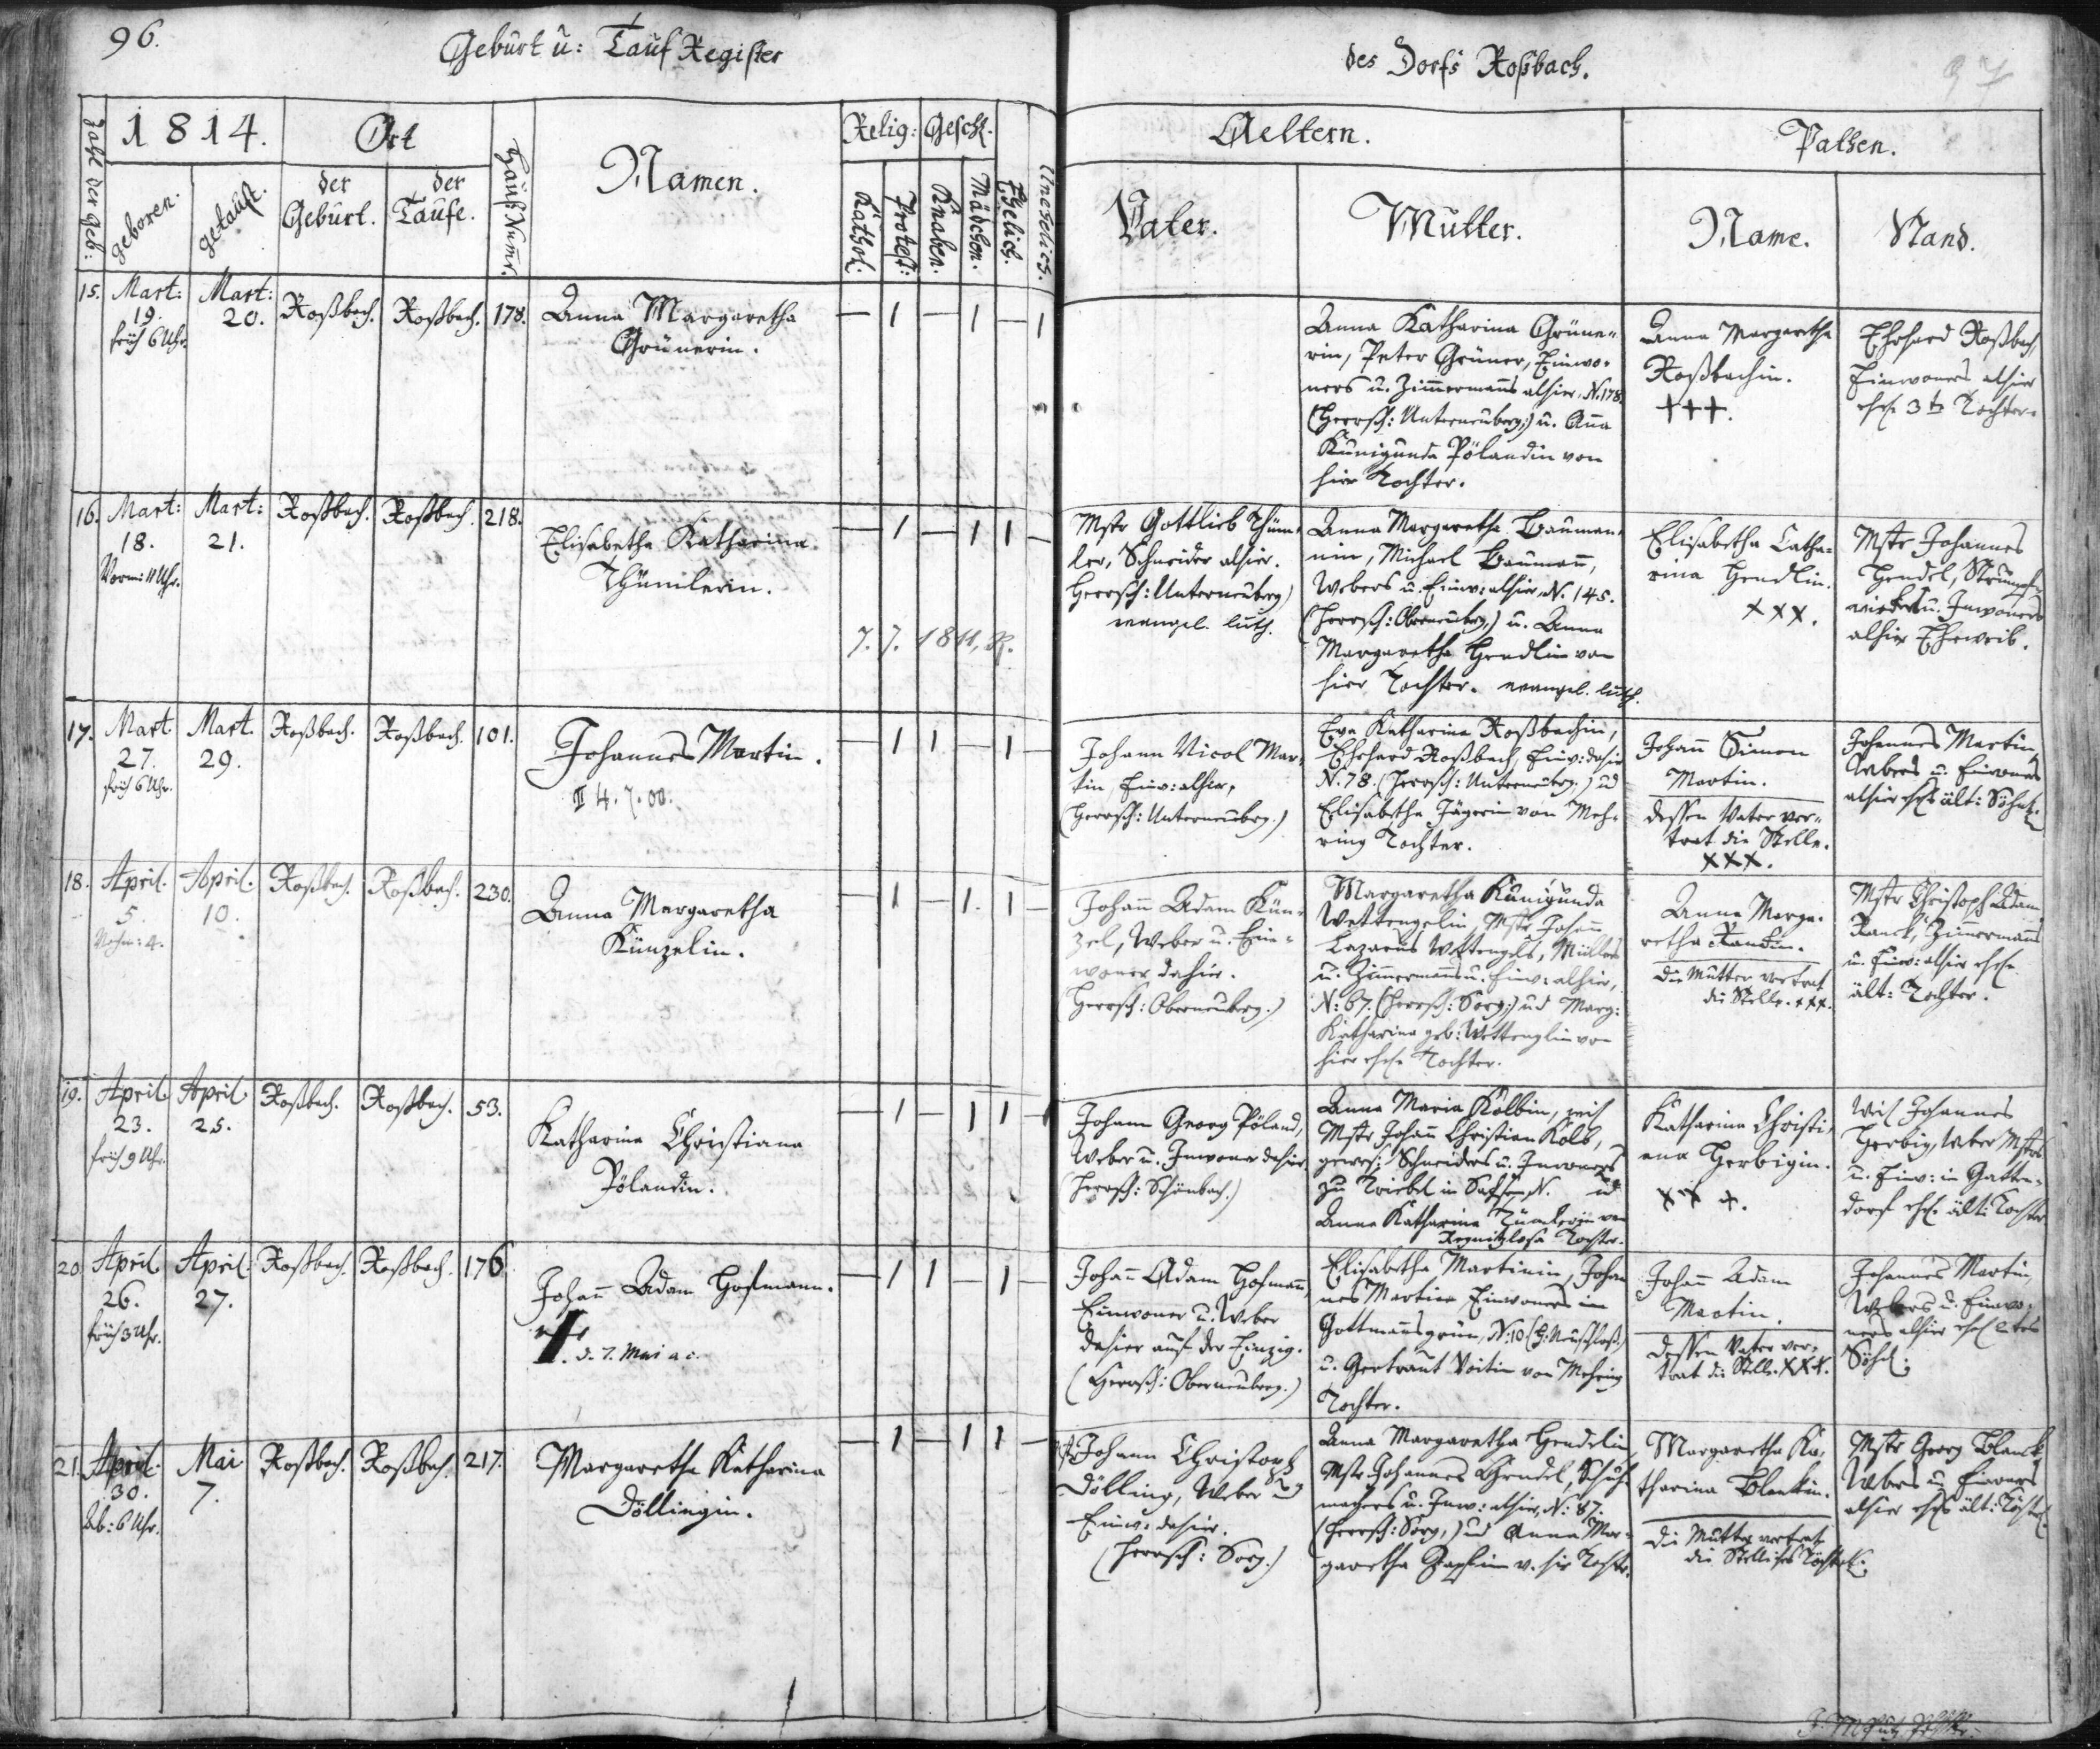 96.
Geburt u: Tauf Register
des Dorfs Roßbach.
97
Zahl der Geb:
1814.
geboren.
getauft.
Ort
der Geburt.
der Taufe.
Hauß Numr.
Namen.
Relig:
Kathol.
Protest:
Geschl.
Knaben.
Mädchen.
Ehelich.
Unehelich.
Aeltern.
Vater.
Mutter.
Pathen.
Name.
Stand.
15. Mart: 19. früh 6 Uhr.
Mart: 20.
Roßbach. Roßbach. 178.
Anna Margaretha
Grünerin.
— 1 — 1 — 1
Anna Katharina Grüne-
rin, Peter Grüner, Einwo-
ners u. Zimmermanns alhier, N. 178.
(Herrsch: Unterneuberg.) u. Anna
Kunigunda Pölandin von
hier Tochter.
Anna Margaretha
Roßbachin.
+++.
Ehrhard Roßbach,
Einwoners alhier
ehel. 3te Tochter.
16. Mart: 18. Vorm: 11 Uhr.
Mart: 21.
Roßbach. Roßbach. 218.
Elisabetha Katharina
Thümlerin.
— 1 — 1 1 —
7. 7. 1811, R.
Mstr Gottlieb Thüm-
ler, Schneider alhier.
Herrsch: Unterneuberg)
evangel. luth.
Anna Margaretha Bauman-
nin, Michael Baumann,
Webers u. Einw: alhier, N. 145.
(Herrsch: Oberneuberg.) u. Anna
Margaretha Hendlin von
hier Tochter. evangel. luth.
Elisabetha Catha-
rina Hendlin.
xxx.
Mstr Johannes
Hendel, Strumpf-
wirker u. Inwoners
alhier Eheweib.
17. Mart. 27. früh 6 Uhr.
Mart. 29.
Roßbach. Roßbach. 101.
Johannes Martin.
II 4. 7. 00.
— 1 1 — 1
Johann Nicol Mar-
tin, Einw: alhier,
(Herrsch: Unterneuberg.)
Eva Katharina Roßbachin,
Ehrhard Roßbach, Einw: dahier
N. 78. (Herrsch: Unterneuberg.) und
Elisabetha Jägerin von Meh-
ring Tochter.
Johann Simon
Martin.
dessen Vater ver-
trat die Stelle.
xxx.
Johannes Martin,
Webers u. Einwoners
alhier ehel. ält: Söhnl.
18. April. 5. Nachm: 4.
April. 10.
Roßbach. Roßbach. 230.
Anna Margaretha
Künzelin.
— 1 — 1. 1 —
Johann Adam Kün-
zel, Weber u. Ein-
woner dahier.
(Herrsch: Oberneuberg.)
Margaretha Kunigunda
Wettengelin, Mstr Johann
Lazarus Wettengels, Müllers
u. Zimmermanns u. Einw: alhier,
N: 67. (Herrsch: Sorg.) und Marg:
Katharina geb: Wettenglin von
hier ehel. Tochter.
Anna Marga-
retha Rankin.
die Mutter vertrat
die Stelle. xxx.
Mstr Christoph Adam
Ranck, Zimmermanns
u. Einw: alhier ehel.
ält: Tochter.
19. April. 23. früh 9 Uhr.
April. 25.
Roßbach. Roßbach. 53.
Katharina Christiana
Pölandin.
— 1 — 1 1 —
Johann Georg Pöland,
Weber u. Inwoner dahier.
(Herrsch: Schönbach.)
Anna Maria Kolbin,
Mstr Johann Christian Kolb,
gewes: Schneiders u. Inwoners
zu Triebel in Sachsen, N. und
Anna Katharina von
Regnitzlosa Tochter.
Katharina Christi-
ana Herbigin.
xxx.
Johannes
Herbig, Weber Mstrs
u. Einw: in Gatten-
dorf ehel. ält: Tochter
20. April. 26. früh 3 Uhr.
April. 27.
Roßbach. Roßbach. 176
Johann Adam Hofmann.
d. 7. Mai a. c.
— 1 1 — 1 —
Johann Adam Hofmann,
Einwoner u. Weber
dahier auf der Einzig.
(Herrsch: Oberneuberg.)
Elisabetha Martinin, Johan
nes Martin Einwoners in
Gottmannsgrün, N: 10 (H: Neuschloß.)
u. Gertraut Voitin von Mehring
Tochter.
Johann Adam
Martin.
dessen Vater ver-
trat die Stelle. xxx.
Johannes Martin,
Webers u. Einwo-
ners alhier ehel. 2tes
Söhnl.
21. April. 30. Ab: 6 Uhr.
Mai 7.
Roßbach. Roßbach. 217.
Margaretha Katharina
Döllingin.
— 1 — 1 1 —
Johann Christoph
Dölling, Weber u.
Einw: dahier.
(Herrsch: Sorg.)
Anna Margaretha Hendelin
Mstr Johannes Hendel, Schuh-
machers u. Inw: alhier, N: 87.
(Herrsch: Sorg.) und Anna Mar-
garetha v. hier Tochter.
Margaretha Ka-
tharina Blankin.
die Mutter vertrat
die Stelle ihres Töchterl.
Mstr Georg Blanck,
Webers u. Einwoners
alhier ehel. ält: Töchterl.